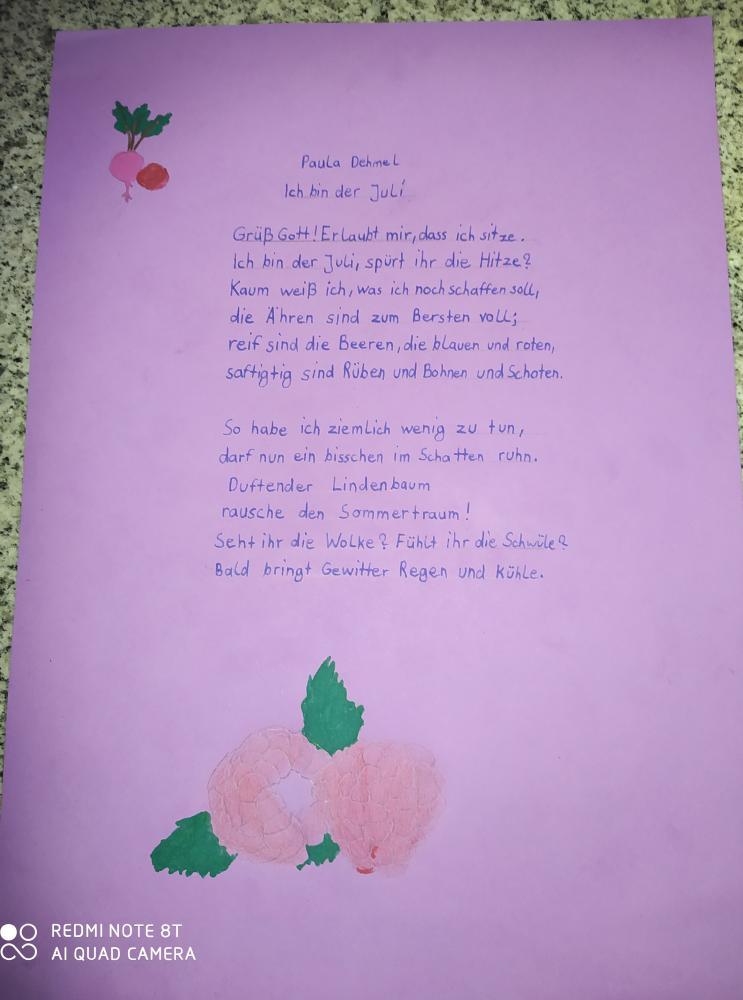 Paula Dehmel
Ich bin der Juli
Grüß Gott! Erlaubt mir, dass ich sitze.
Ich bin der Juli, spürt ihr die Hitze?
Kaum weiß ich, was ich noch schaffen soll,
die Ähren sind zum Bersten voll;
reif sind die Beeren, die blauen und roten,
saftigtig sind Rüben und Bohnen und Schoten.
So habe ich ziemlich wenig zu tun,
darf nun ein bisschen im Schatten ruhn.
Duftender Lindenbaum
rausche den Sommertraum!
Seht ihr die Wolke? Fühlt ihr die Schwüle?
Bald bringt Gewitter Regen und Kühle.
REDMI NOTE 8T
AI QUAD CAMERA